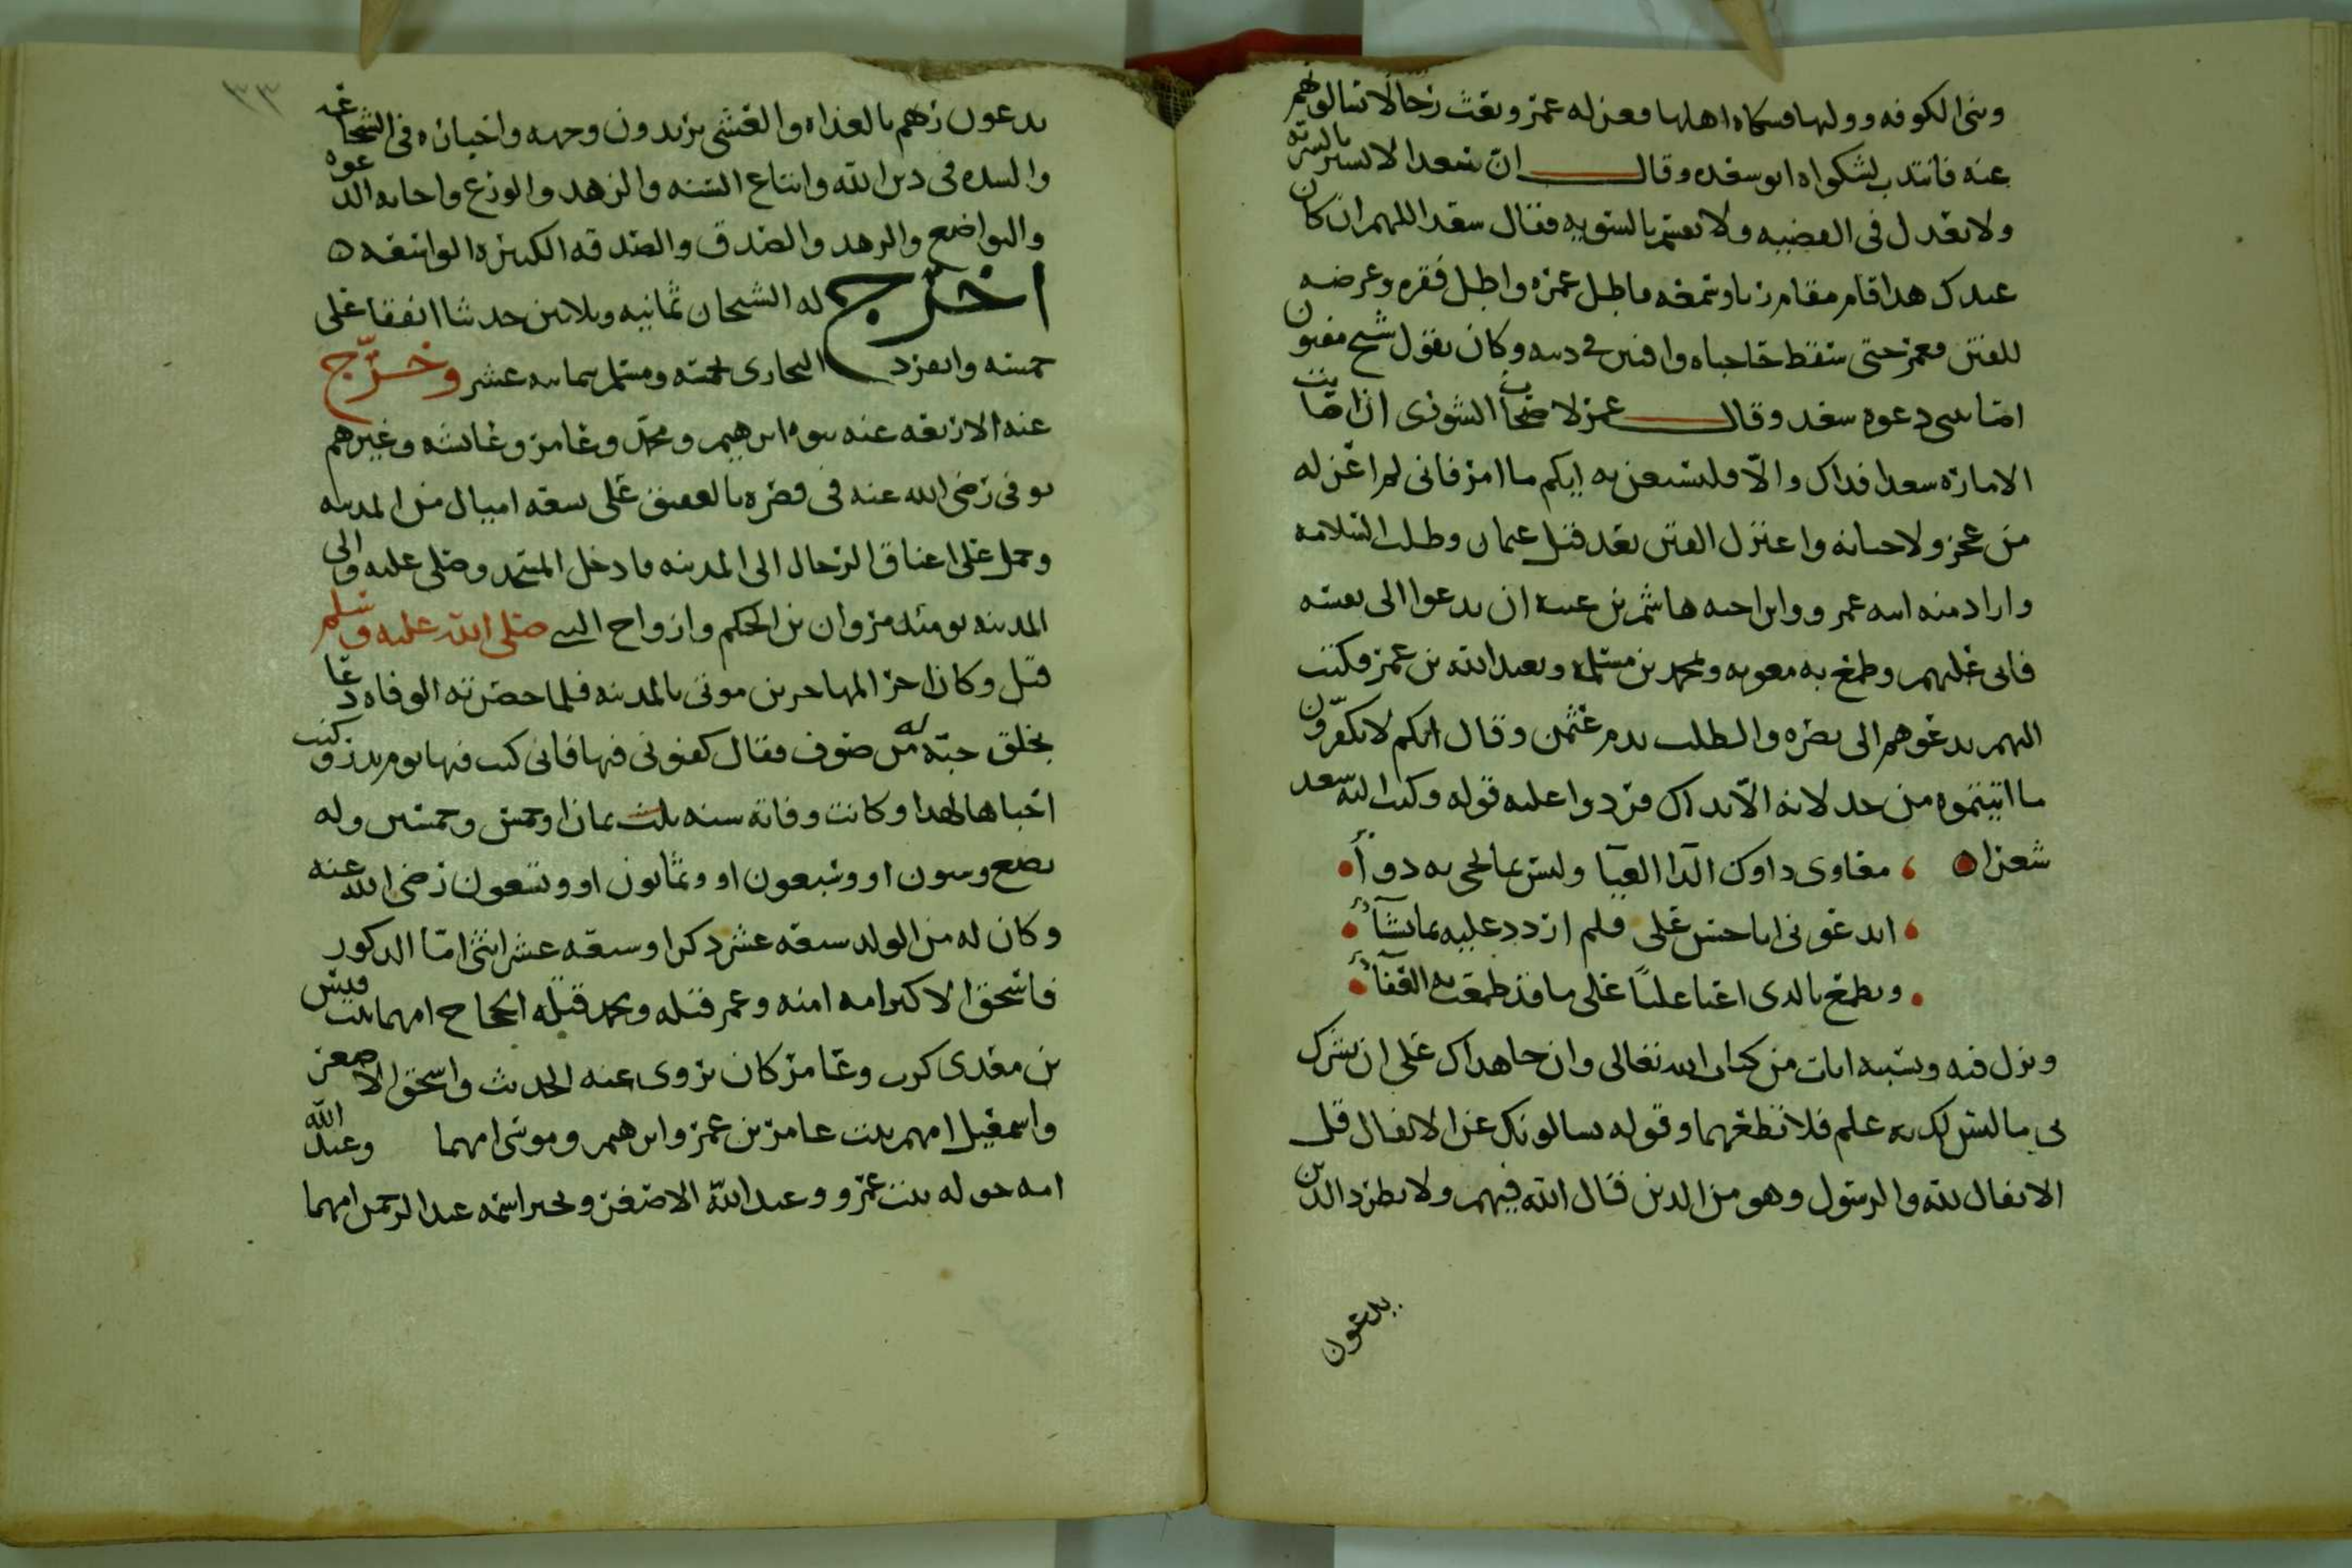 وبنى الكوفه ووليها فسكاه اهلها فعزله عمر وبعث رجالا يسالونهم
عنه فانتدب لشكواه ابو سعده وقال ان سعدا لا يسير بالسريه
ولا يعدل في القضيه ولا يقسم بالسويه فقال سعد اللهم ان كان
عبدك هذا قام مقام ريا وسمعه فاطل عمره واطل فقره وعرضه
للفتن فعمر حتى سقط حاجباه وافتتن في دينه وكان يقول شيخ مفتون
اصابتني دعوه سعد وقال عمر لاصحاب الشورى ان اصابت
الاماره سعدا فذاك والا فليستعن به ايكم ما امر فاني لم اعزله
من عجز ولا خيانه واعتزل الفتن بعد قتل عثمان وطلب السلامه
واراد منه ابنه عمر وابن اخيه هاشم بن عتبه ان يدعوا الى بيعته
فابى عليهم وطمع به معويه ومحمد بن مسلمه وبعبد الله بن عمر فكتب
اليهم يدعوهم الى نصره والطلب بدم عثمن وقال انكم لا تكفرون
ما اتيتموه من خذلانه الا بذاك فردوا عليه قوله وكتب اليه سعد
شعرا معاوي داوك الدا العيا وليس بما تجي به دوآ
ايدعوني ابا حسن علي فلم اردد عليه بما يشآ
ويطمع بالذي اعيا عليا على ما قد طمعت به العفآ
ونزل فيه وبسببه ايات من كتاب الله تعالى وان جاهداك على ان تشرك
بي ما ليس لك به علم فلا تطعهما وقوله يسالونك عن الانفال قل
الانفال لله والرسول وهو من الذين قال الله فيهم ولا تطرد الذين
يدعون
٣٣
يدعون ربهم بالغداه والعشي يريدون وجهه واخباره في الشجاعه
والشده في دين الله واتباع السنه والزهد والورع واجابه الدعوه
والتواضع والزهد والصدق والصدقه الكثيره الواسعه
اخرج له الشيخان ثمانيه وثلاثين حديثا اتفقا على
خمسه وانفرد البخاري بخمسه ومسلم بثمانيه عشر وخرج
عنه الاربعه عنه بنوه ابرهيم ومحمد وعامر وعايشه وغيرهم
توفي رضي الله عنه في قصره بالعقيق على سبعه اميال من المدينه
وحمل على اعناق الرجال الى المدينه فادخل المسجد وصلى عليه والي
المدينه يومئذ مروان بن الحكم وازواج النبي صلى الله عليه وسلم
قيل وكان اخر المهاجرين موتى بالمدينه فلما حضرته الوفاه دعا
بخلق جبه له من صوف فقال كفنوني فيها فاني كنت فيها يوم بدر وكنت
اخباها لهذا وكانت وفاته سنه ثلث ثمان او خمس وخمسين وله
بضع وستون او وسبعون او وثمانون او وتسعون رضي الله عنه
وكان له من الولد سبعه عشر ذكرا وسبعه عشر انثى اما الذكور
فاسحق الاكبر امه امنه وعمر قتله ومحمد قتله الحجاج امهما بنت قيس
بن معدي كرب وعامر كان يروي عنه الحديث واسحق الاصغر
واسمعيل امهم بنت عامر بن عمر وابرهيم وموسى امهما وعبد الله
امه خوله بنت عمرو وعبد الله الاصغر وبحير اسمه عبد الرحمن امهما